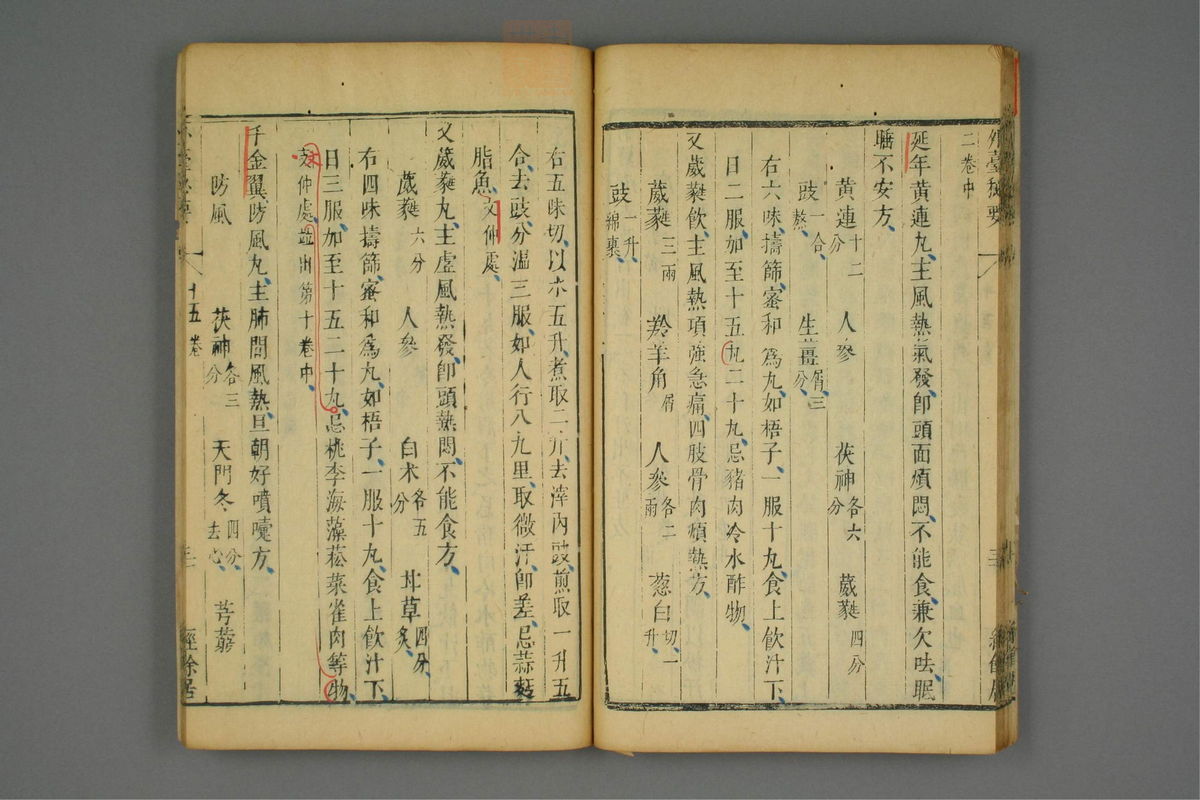 外臺秘要
二卷中
延年黃連丸主風熱氣發卽頭面煩悶不能食兼欠呿眠
睡不安方
黃連十二分 人參 茯神各六分 葳蕤四分
豉一合熬 生薑屑三分
右六味擣篩蜜和爲丸如梧子一服十丸食上飲汁下
日二服加至十五丸二十丸忌豬肉冷水酢物
又葳蕤飲主風熱項強急痛四肢骨肉煩熱方
葳蕤三兩 羚羊角屑 人參各二兩 葱白切一升
豉一升綿裹
右五味切以水五升煮取二升去滓內豉煎取一升五
合去豉分溫三服如人行八九里取微汗卽差忌蒜麪
脂魚文仲處
又葳蕤丸主虛風熱發卽頭熱悶不能食方
葳蕤六分 人參 白朮各五分 甘草四分炙
右四味擣篩蜜和爲丸如梧子一服十丸食上飲汁下
日三服加至十五二十丸忌桃李海藻菘菜雀肉等物
文仲處並出第十卷中
千金翼防風丸主肺間風熱旦朝好噴嚏方
防風 茯神各三分 天門冬四分去心 芎藭
十五卷
經餘居